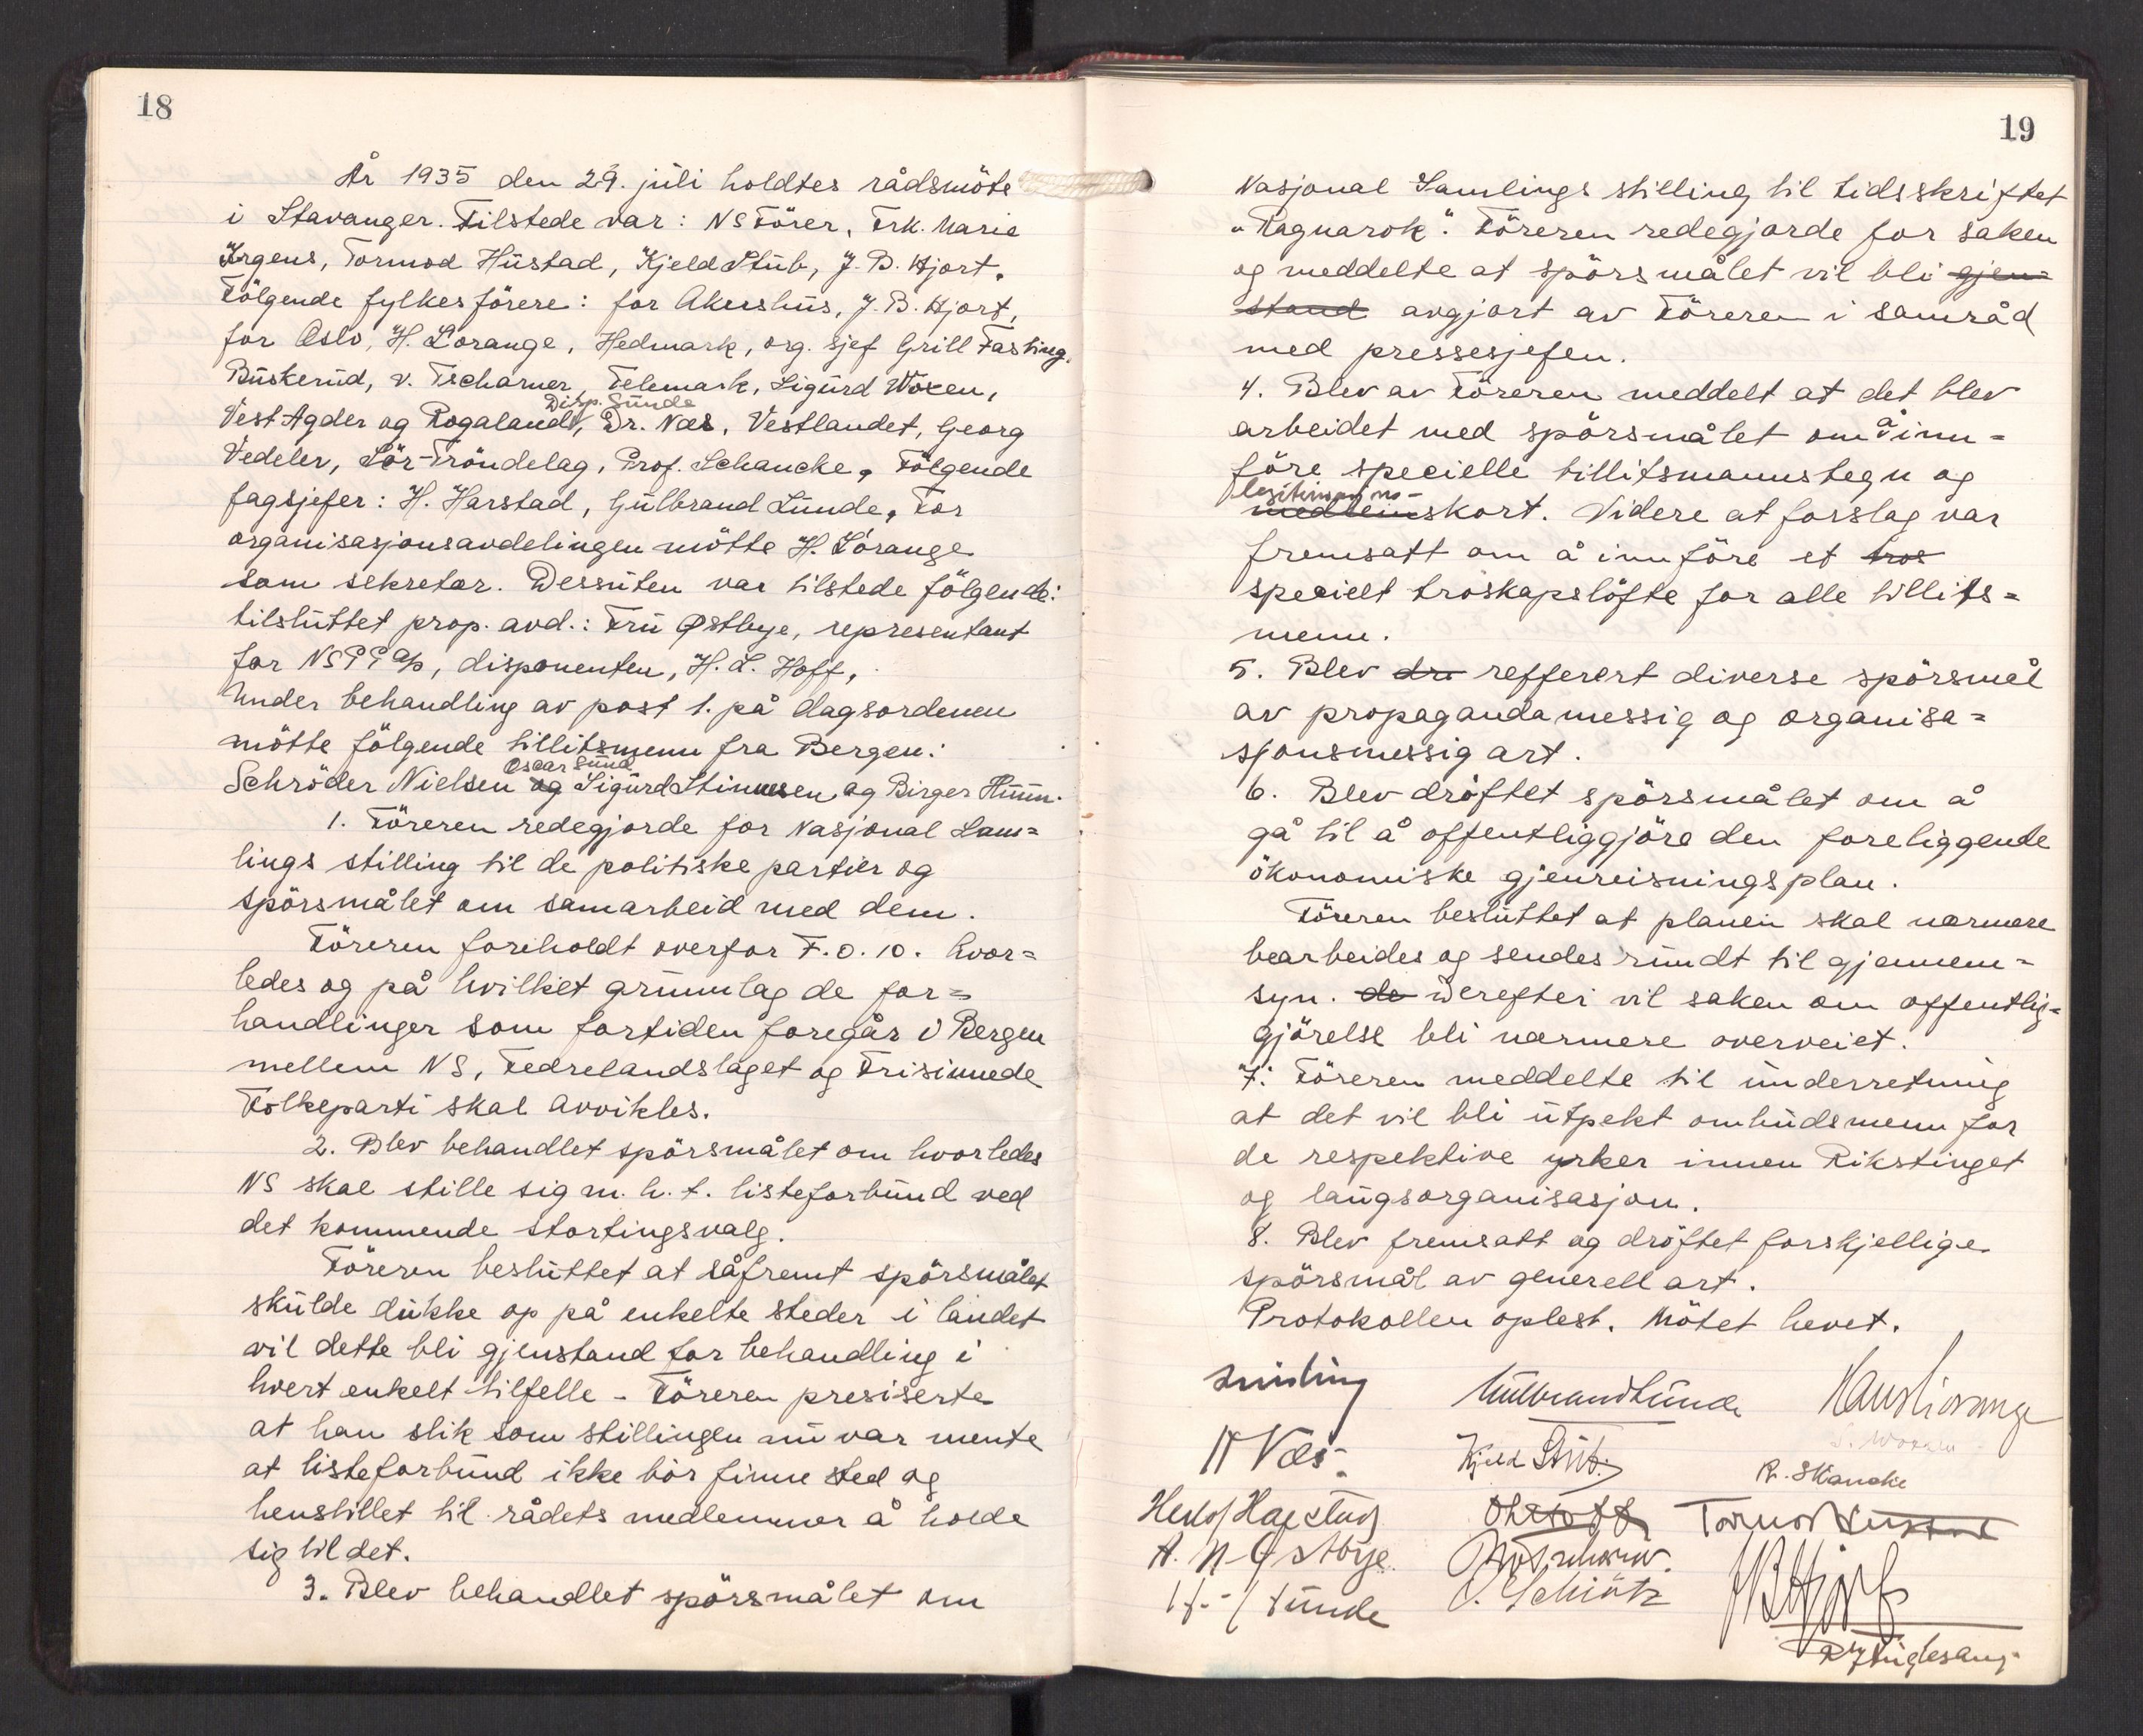 18
År 1935 den 29. juli holdtes rådsmöte
i Stavanger. Tilstede var: NS Förer, Frk. Marie
Irgens, Tormod Hustad, Kjeld Stub, J. B. Hjort.
Fölgende fylkesförere: for Akershus, J. B. Hjort,
for Oslo, H. Lorange, Hedmark, org. sjef Grill Fasting.
Buskerud, v. Tscharner, Telemark, Sigurd Woxen,
Disp. Sunde
Vest Agder og Rogaland, Dr. Næs, Vestlandet, Georg
Vedeler, Sör-Tröndelag, Prof. Schancke. Fölgende
fagsjefer: H. Harstad, Gulbrand Lunde. For
organisasjonsavdelingen mötte H. Lorange
som sekretær. Dessuten var tilstede fölgende:
tilsluttet prop. avd.: Fru Østbye, representant
for NSPP a/s, disponenten, H. L. Hoff,
Under behandling av post 1. på dagsordenen
mötte fölgende tillitsmenn fra Bergen:
Oscar Sund
Schröder Nielsen og Sigurd Stinessen og Birger Huun.
1. Föreren redegjorde for Nasjonal Sam=
lings stilling til de politiske partier og
spörsmålet om samarbeid med dem.
Föreren foreholdt overfor F.O. 10. hvor=
ledes og på hvilket grunnlag de for=
handlinger som fortiden foregår i Bergen
mellem NS, Fedrelandslaget og Frisinnede
Folkeparti skal avvikles.
2. Blev behandlet spörsmålet om hvorledes
NS skal stille sig m. h. t. listeforbund ved
det kommende stortingsvalg.
Föreren besluttet at såfremt spörsmålet
skulde dukke op på enkelte steder i landet
vil dette bli gjenstand for behandling i
hvert enkelt tilfelle - Föreren presiserte
at han slik som stillingen nu var mente
at listeforbund ikke bör finne sted og
henstillet til rådets medlemmer å holde
sig til det.
3. Blev behandlet spörsmålet om
19
Nasjonal Samlings stilling til tidsskriftet
"Ragnarok". Föreren redegjorde for saken
og meddelte at spörsmålet vil bli gjen=
stand avgjort av Föreren i samråd
med pressesjefen.
4. Blev av Föreren meddelt at det blev
arbeidet med spörsmålet om å inn=
före specielle tillitsmannstegn og
legitimasjons-
medlemskort. Videre at forslag var
fremsatt om å innföre et tros
specielt troskapslöfte for alle tillits=
menn.
5. Blev dr. refferert diverse spörsmål
av propagandamessig og organisa=
sjonsmessig art.
6. Blev dröftet spörsmålet om å
gå til å offentliggjöre den foreliggende
ökonomiske gjenreisningsplan.
Föreren besluttet at planen skal nærmere
bearbeides og sendes rundt til gjennem=
syn. de Derefter vil saken om offentlig=
gjörelse bli nærmere overveiet.
7. Föreren meddelte til underretning
at det vil bli utpekt ombudsmenn for
de respektive yrker innen Rikstinget
og laugsorganisasjon.
8. Blev fremsatt og dröftet forskjellige
spörsmål av generell art.
Protokollen oplest. Mötet hevet.
Quisling Gulbrand Lunde Hans Lorange
S. Woxen
Næs Kjeld Stub. R. Skancke
Herlof Harstad Tormod Hustad
Østbye
Sunde O. Schiötz JB Hjort
Fuglesang